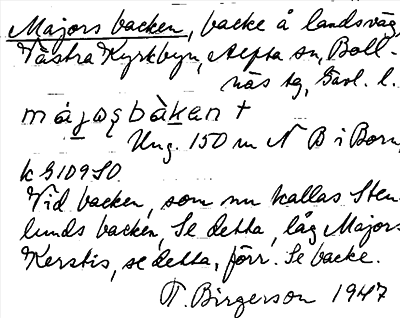 Majors backen, backe å landsväg,
Västra Kyrkbyn, Alfta sn, Boll-
näs tg, Gävl. l.
màjọșbàkan +
Ung. 150 m N B i Born,
k G109SO.
Vid backen, som nu kallas Sten-
lunds backen, Se detta, låg Majors
Kerstis, se detta, förr. Se backe.
T. Birgerson 1947